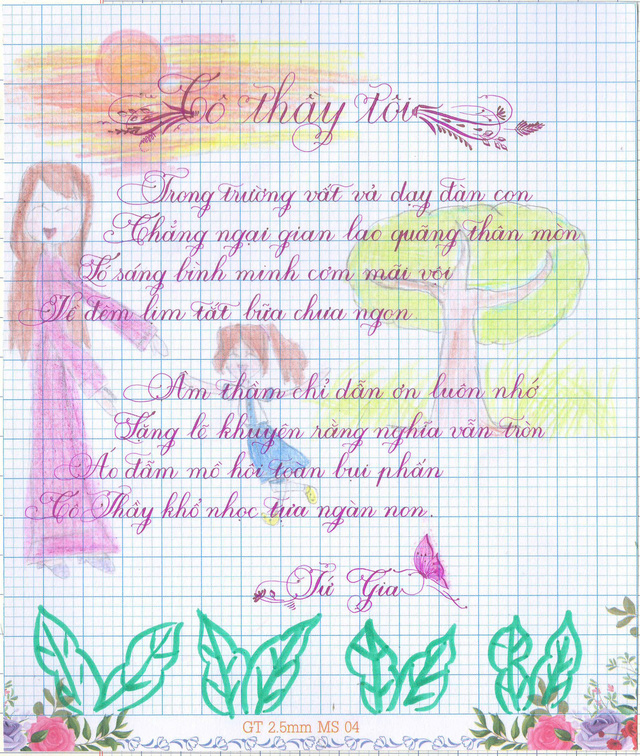 Cô thầy tôi
Trong trường vất vả dạy đàn con
Chẳng ngại gian lao quãng thân mòn
Tố sáng bình minh cơm mãi vội
Về đêm lịm tắt bữa chưa ngon
Âm thầm chỉ dẫn ơn luôn nhớ
Lặng lẽ khuyên răng nghĩa vẫn tròn
Áo đẫm mồ hôi toàn bụi phấn
Cô Thầy khổ nhọc tựa ngàn non.
Tú Gia
GT 2.5mm MS 04